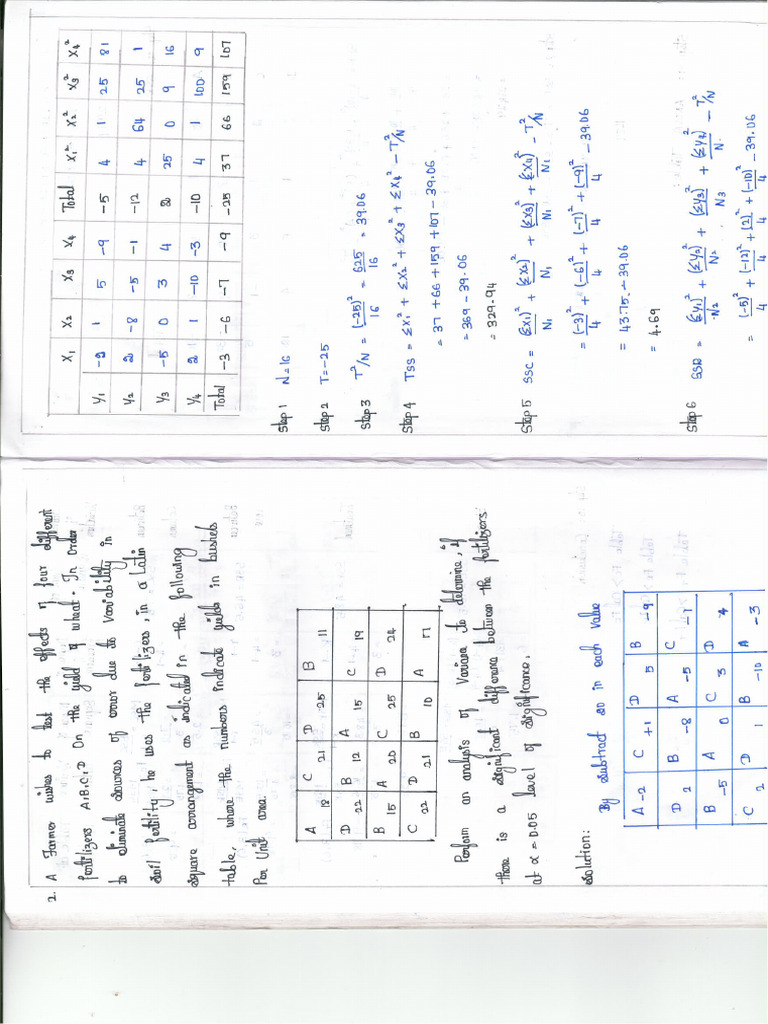 2. A Farmer wishes to test the effects of four different
fertilizers A,B,C,D On the yield of wheat. In Order
to eliminate sources of error due to variability in
soil fertility, he uses the fertilizers, in a Latin
square arrangement as indicated in the following
table, where the numbers indicate yields in bushels
Per Unit area.
A 18 C 21 D 25 B 11
D 22 B 12 A 15 C 19
B 15 A 20 C 25 D 24
C 22 D 21 B 10 A 17
Perform an analysis of Variance to determine, if
there is a significant difference between the fertilizers
at α = 0.05 level of significance.
Solution:
By subtract 20 in each value
A -2 C +1 D 5 B -9
D 2 B -8 A -5 C -7
B -5 A 0 C 3 D 4
C 2 D 1 B -10 A -3
X1 X2 X3 X4 Total X1² X2² X3² X4²
Y1 -2 1 5 -9 -5 4 1 25 81
Y2 2 -8 -5 -1 -12 4 64 25 1
Y3 -5 0 3 4 2 25 0 9 16
Y4 2 1 -10 -3 -10 4 1 100 9
Total -3 -6 -7 -9 -25 37 66 159 107
Step 1 N=16
Step 2 T=-25
Step 3 T²/N = (-25)²/16 = 625/16 = 39.06
Step 4 TSS = ΣX1² + ΣX2² + ΣX3² + ΣX4² - T²/N
= 37+66+159+107-39.06
= 369-39.06
= 329.94
Step 5 SSC = (ΣX1)²/N1 + (ΣX2)²/N1 + (ΣX3)²/N1 + (ΣX4)²/N1 - T²/N
= (-3)²/4 + (-6)²/4 + (-7)²/4 + (-9)²/4 - 39.06
= 43.75-39.06
= 4.69
Step 6 SSR = (ΣY1)²/N2 + (ΣY2)²/N2 + (ΣY3)²/N3 + (ΣY4)²/N - T²/N
= (-5)²/4 + (-12)²/4 + (2)²/4 + (-10)²/4 - 39.06